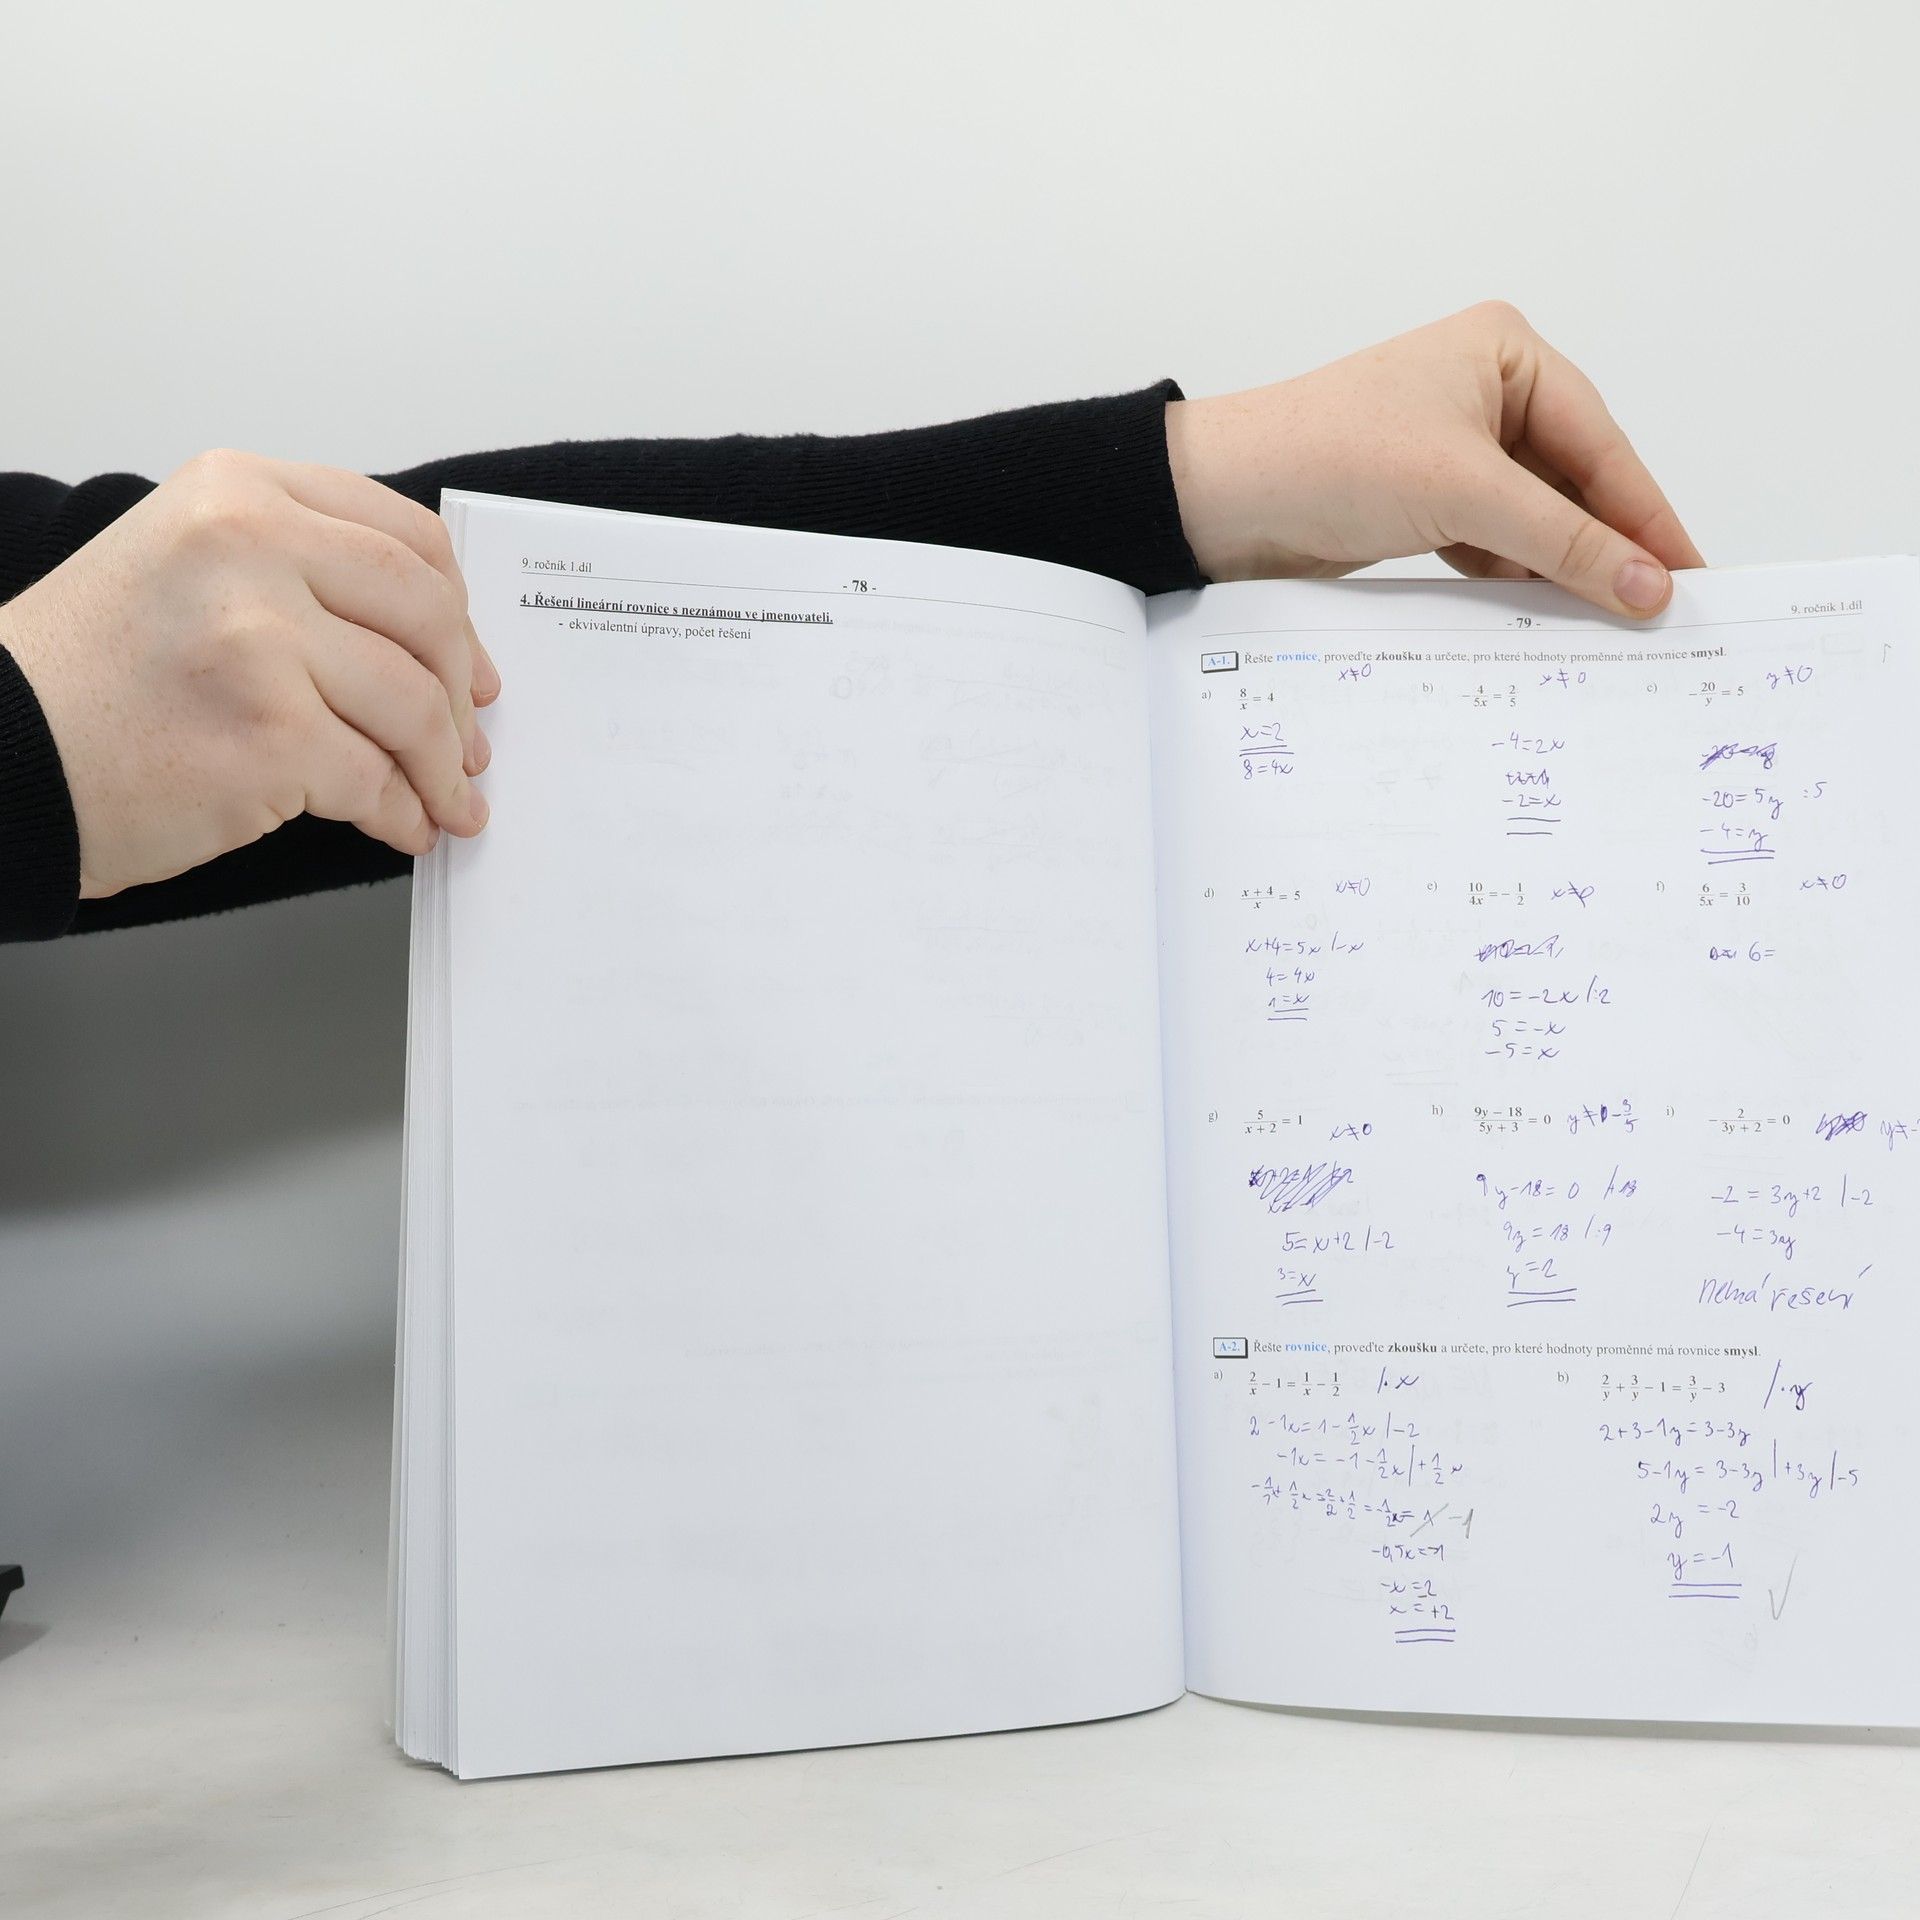 9. ročník 1.díl
- 78 -
4. Řešení lineární rovnice s neznámou ve jmenovateli.
- ekvivalentní úpravy, počet řešení
- 79 -
9. ročník 1.díl
A-1. Řešte rovnice, proveďte zkoušku a určete, pro které hodnoty proměnné má rovnice smysl.
a) 8/x = 4 x≠0
x=2
8=4x
b) -4/5x = 2/5 x≠0
-4=2x
-2=x
c) -20/y = 5 y≠0
-20=5y :5
-4=y
d) x + 4/x = 5 x≠0
x+4=5x /-x
4=4x
1=x
e) 10/4x = -1/2 x≠0
10=-2x /:2
5=-x
-5=x
f) 6/5x = 3/10 x≠0
6=
g) 5/x + 2 = 1 x≠0
5=x+2 /-2
3=x
h) 9y - 18/5y + 3 = 0 y≠-3/5
9y-18=0 /+18
9y=18 /:9
y=2
i) -2/3y + 2 = 0 y≠-
-2=3y+2 /-2
-4=3y
nemá řešení
A-2. Řešte rovnice, proveďte zkoušku a určete, pro které hodnoty proměnné má rovnice smysl.
a) 2/x - 1 = 1/x - 1/2 /·x
2-1x=1-1/2x /-2
-1x=-1-1/2x /+1/2x
-1
-0,5x=-1
-x=2
x=+2
b) 2/y + 3/y - 1 = 3/y - 3 /·y
2+3-1y=3-3y
5-1y=3-3y /+3y /-5
2y=-2
y=-1